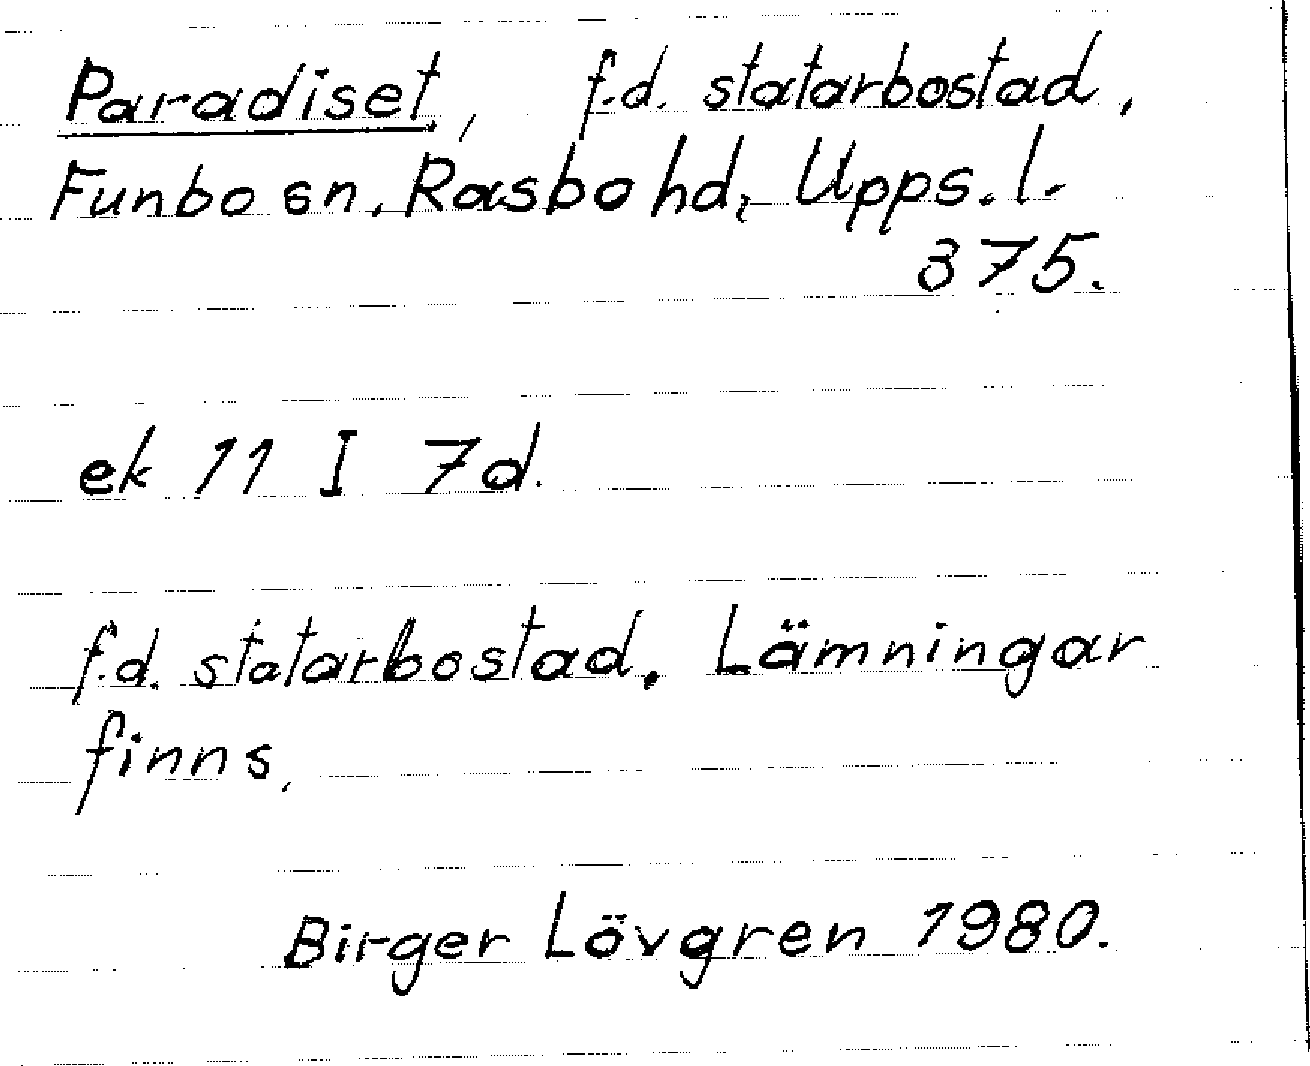 Paradiset, f.d. statarbostad,
Funbo sn, Rasbo hd, Upps. l.
375.
ek 11 I 7d.
f.d. statarbostad. Lämningar
finns.
Birger Lövgren 1980.